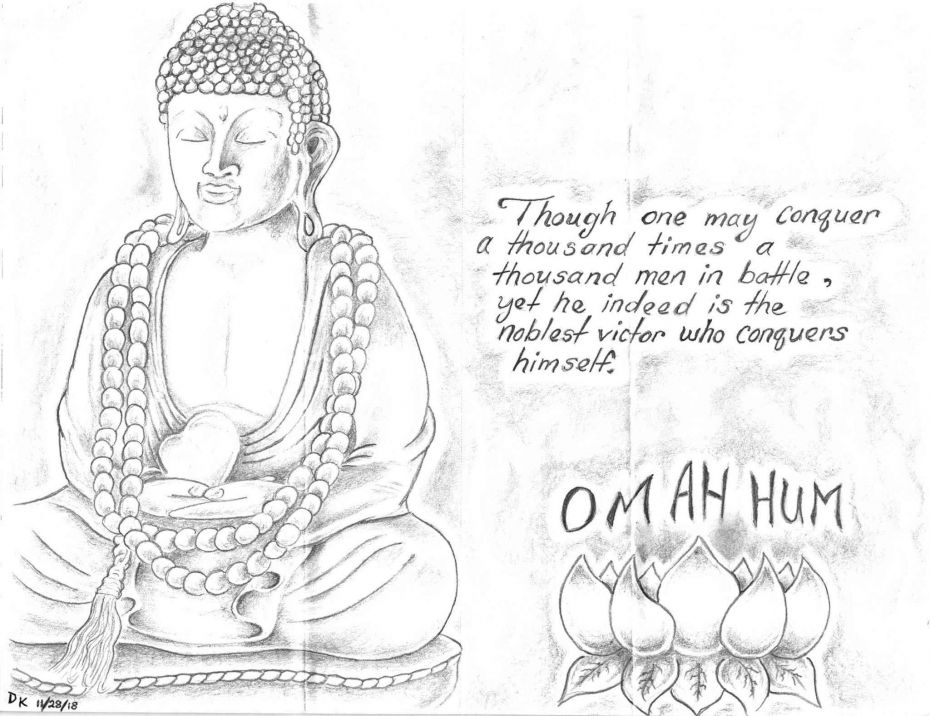 Though one may conquer
a thousand times a
thousand men in battle,
yet he indeed is the
noblest victor who conquers
himself.
OM AH HUM
DK 11/28/18